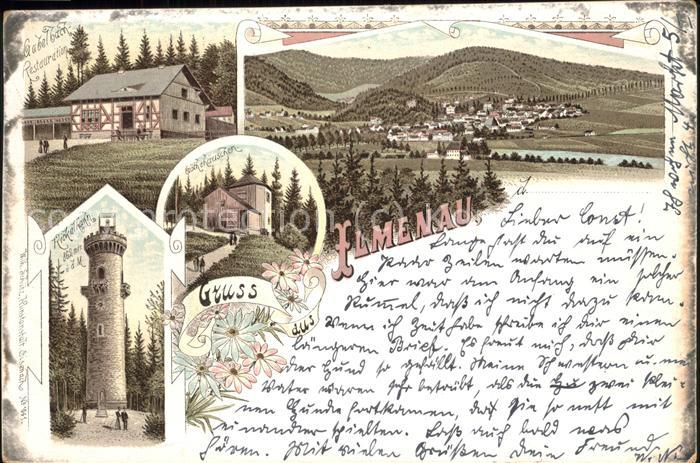 Gabelbach
Restauration
Goethehäuschen
Kickelhahn
ü. d. M.
Gruss
aus
ILMENAU.
d.
Lieber Ernst!
Lange hast du auf ein
Paar Zeilen warten müssen.
Hier war am Anfang ein solcher
Rummel, daß ich nicht dazu kam.
Wenn ich Zeit habe schreibe ich dir einen
längeren Brief. Es freut mich, daß Dir
der Hund so gefällt. Meine Schwestern u. mein
Vater waren sehr betrübt, als die zwei klei-
nen Hunde fortkamen, da sie so nett mit
einander spielten. Laß auch bald was
hören. Mit vielen Grüßen Dein Freund